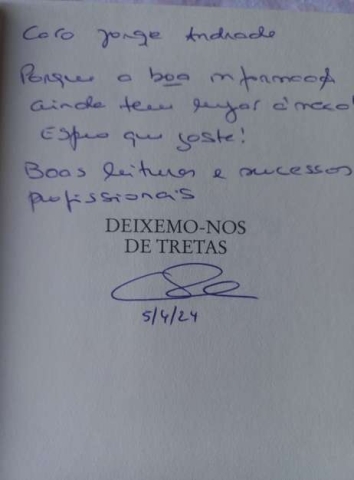 Caro Jorge Andrade
Porque a boa informação
ainda tem lugar à mesa!
Espero que goste!
Boas leituras e sucessos
profissionais
DEIXEMO-NOS
DE TRETAS
5/4/24